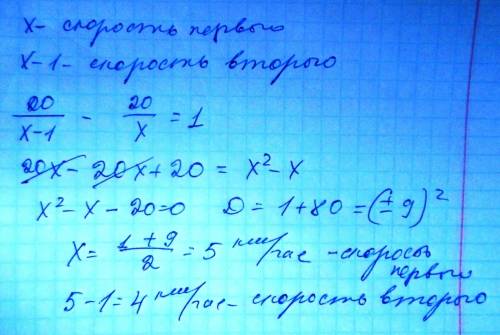 x - скорость первого
x-1 - скорость второго
20/(x-1) - 20/x = 1
20x - 20x + 20 = x² - x
x² - x - 20 = 0 D = 1 + 80 = (± 9)²
x = (1 + 9)/2 = 5 км/час - скорость первого
5 - 1 = 4 км/час - скорость второго